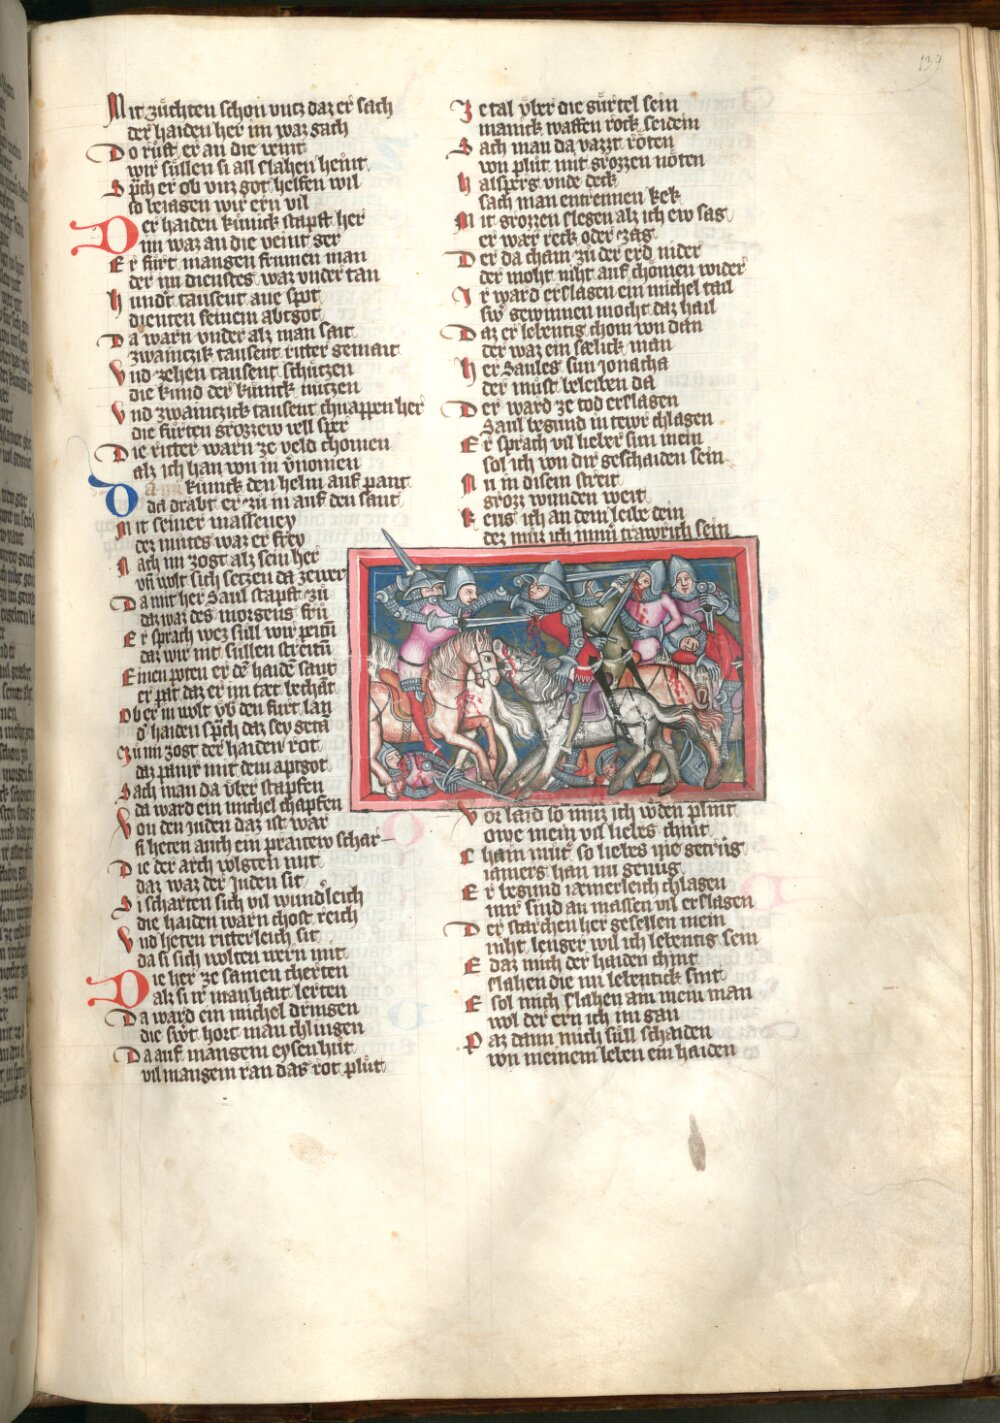 139
Mit zuͤchten schon vntz daz er sach
der haiden her im waz gach
Do ruͦft er an die veint
wir suͤllen si all slahen heint
Sp̄ch er ob vnz got helfen wil
so beiagen wir ern vil
Der haiden kuͤnick stapft her
im waz an die veint ger
Er fuͤrt mangen frumen man
der im dienstes waz vnder tan
Hundt tausent ane spot
dienten seinem abtgot
Da warn vnder alz man sait
zwaintzik tausent ritter gemait
Vnd zehen tausent schuͤtzen
die kund der kuͤnick nutzen
Vnd zwaintzick tausent chnappen her
die fuͤrten grozzew vell sper
Die ritter warn ze veld chomen
alz ich han von in v̊nomen
Da kuͤnick den helm auf pant
da drabt er zuͤ in auf den sant
Mit seiner masseney
dez mutes waz er frey
Nach im zogt alz sein her
vn̄ wolt sich setzen da ze wer
Damit her Saul stapft zuͦ
daz waz des morgens fruͤ
Er sprach wez suͤll wir
daz wir nit suͤllen streitn̄
Einen poten er de haide sant
er pat daz er im tæt bechāt
Ober in wolt vb den furt lan
d haiden sp̄ch daz sey getā
Zu im zogt der haiden rot
daz panir mit dem aptgot
Sach man da vͤber stapfen
da ward ein michel chapfen
Von den Juden daz ist war
si heten auch ein praitew schar
Die der arch volgten mit
daz waz der Juden sit
Si scharten sich vil wundleich
die haiden warn chost reich
Vnd heten ritterleich sit
da si sich wolten wern mit
Die her ze samen cherten
alz si ir manhait lerten
Da ward ein michel dringen
die swt hort man chlingen
Da auf mangem eysenhuͦt
vil mangem ran das rot pluͦt
Ze tal vͤber die guͤrtel sein
manick waffen rock seidein
Sach man da varzt roͤten
von pluͤt mit grozzen noͤten
Halsperg vnde deck
sach man entrennen kek
Mit grozzen slegen alz ich ew sag
er wær reck oder zag
Der da cham zu der erd nider
der moht niht auf chomen wider
Ir ward erslagen ein michel tail
sw gewinnen mocht daz hail
Daz er lebentig chom von dan
der waz ein sælick man
Her Saules sun Jonatha
der muͤst beleiben da
Der ward ze tod erslagen
Saul begund in tewr chlagen
Er sprach vil lieber sun mein
sol ich von dir geschaiden sein
Nu in disem streit
grozz wunden weit
Kens ich an dem leibe dein
dez muͤz ich im̄ trawrich sein
Vor laid so muͤz ich wden plint
owe mein vil liebes chint
Chain muͦt so liebes nie getruͤg
iamers han im genuͤg
Er begund iæmerleich chlagen
mir sind an massen vil erslagen
Der starchen her gesellen mein
niht lenger wil ich lebentig sein
E daz mich der haiden chint
slahen die im lebentick sint
E sol mich slahen ain mein man
wol der ern ich im gan
Daz dann mich suͤll schaiden
von meinem leben ein haiden